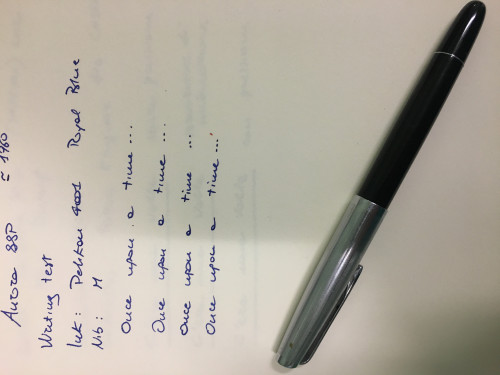 Aurora 88P ≃ 1960
Writing test
Ink: Pelikan 4001 Royal Blue
Nib: M
Once upon a time ...
Once upon a time ...
Once upon a time ...
Once upon a time ...